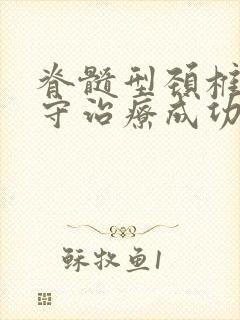 脊髓型颈椎
守治疗成功
稣牧鱼1